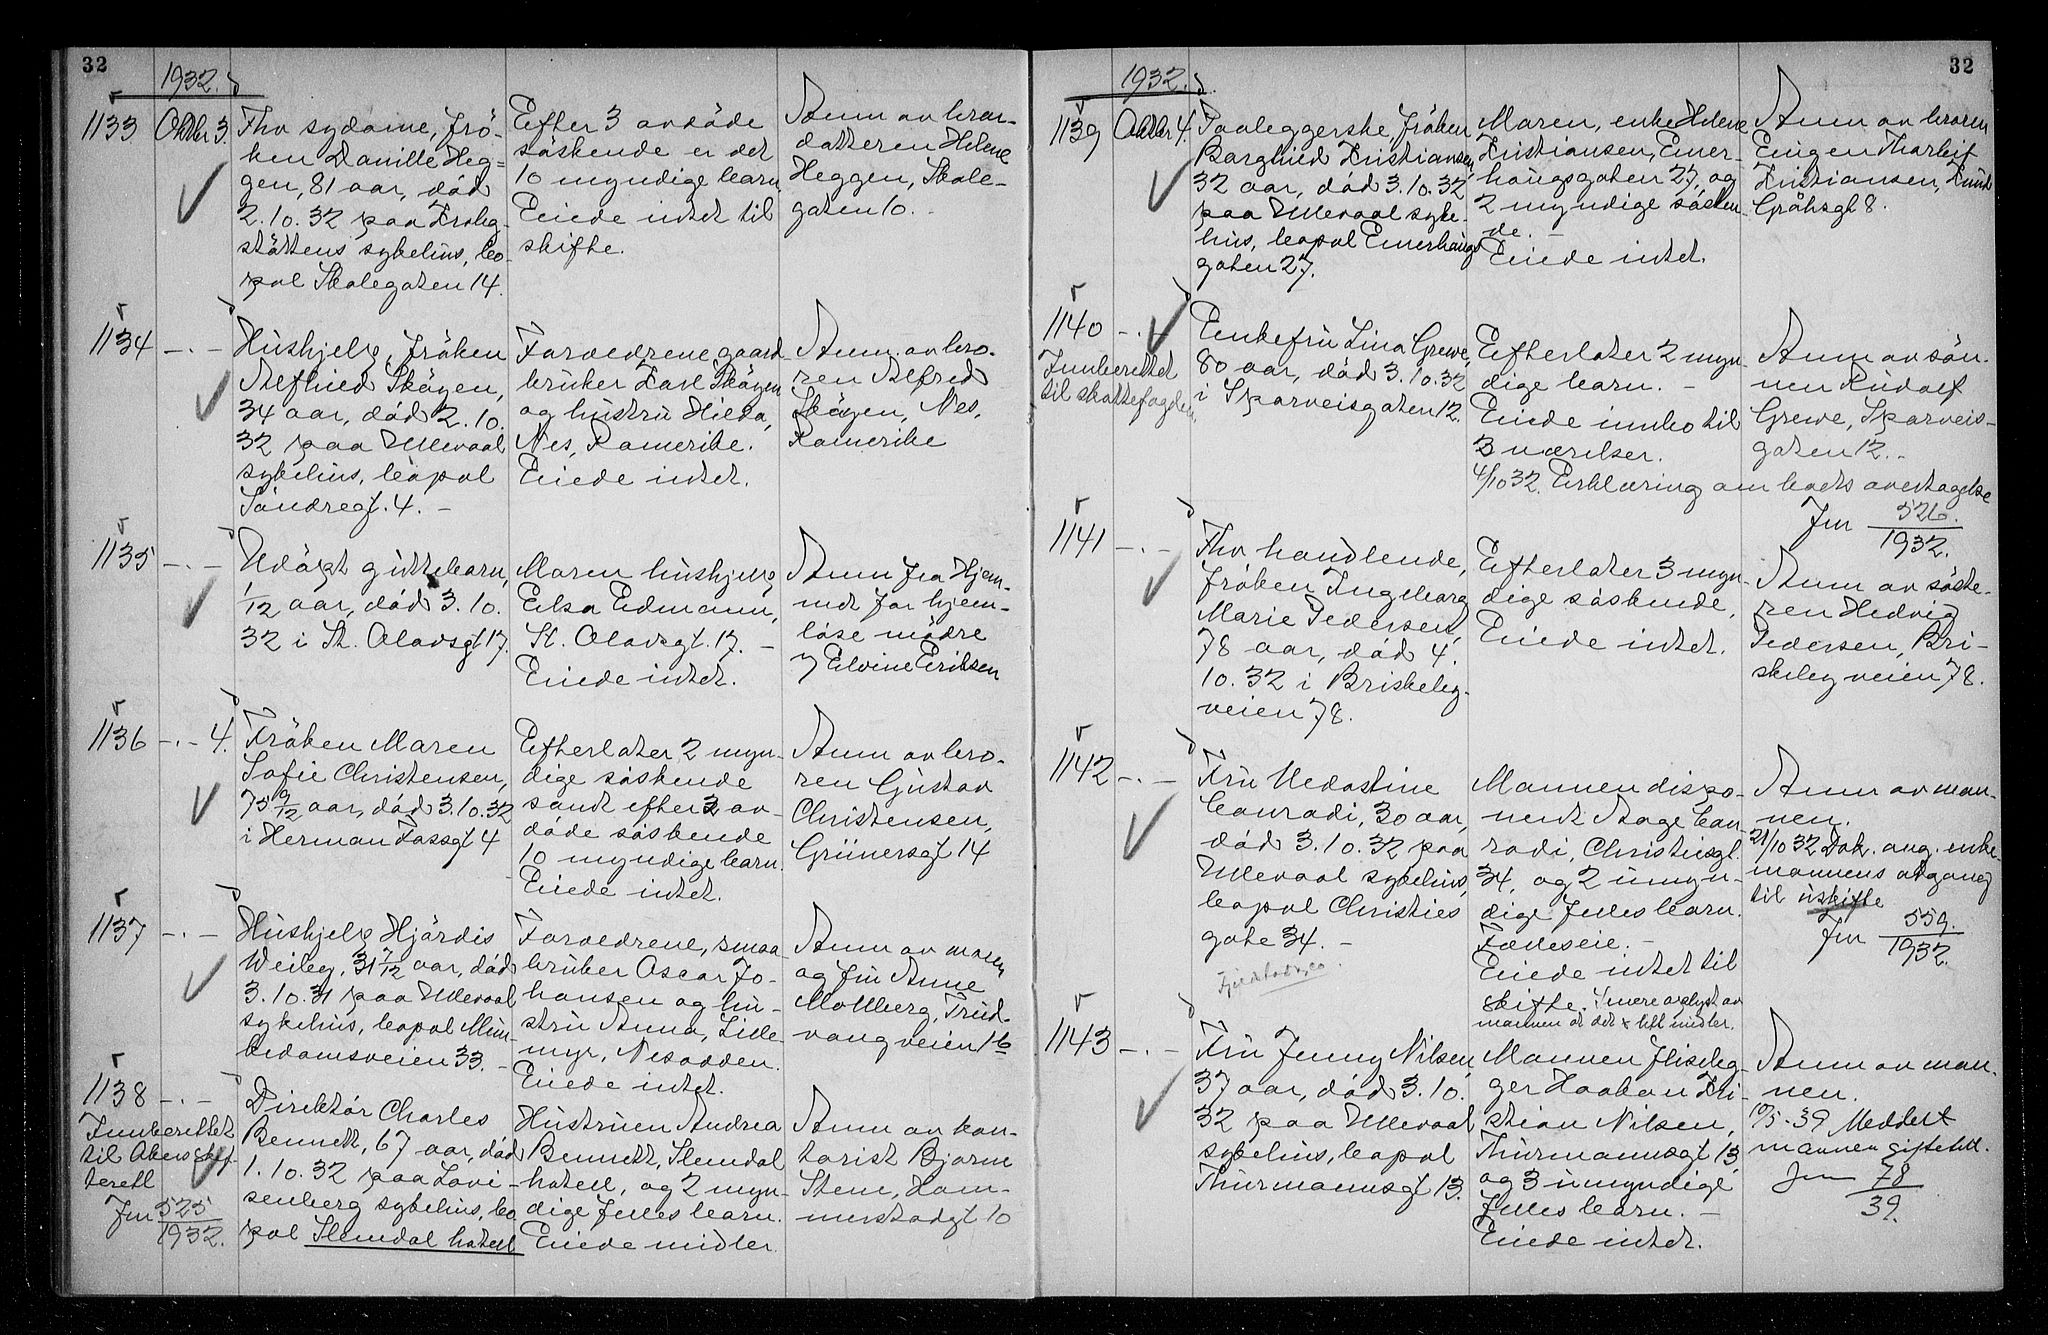 32
1932.
1133 Oktbr 3.
Fhv sydame, frö-
ken Danille Heg-
gen, 81 aar, död
2.10.32 paa Krohg-
stöttens sykehus, bo-
pæl Skolegaten 14.
Efter 3 avdöde
söskende er det
10 myndige barn
Eiede intet til
skifte.
Anm av bror-
datteren Helene
Heggen, Skole-
gaten 10.
1134 -.-
Hushjelp, fröken
Alfhild Skögen,
34 aar, död 2.10.
32 paa Ullevaal
sykehus, bopæl
Söndregt. 4. -
Forældrene gaard-
bruker Karl Skögen
og hustru Hilda,
Nes, Romerike.
Eiede intet.
Anm. av bro-
ren Alfred
Skögen, Nes,
Romerike
1135 -.-
Udöpt guttebarn,
1/12 aar, död 3.10.
32 i St. Olavsgt 17.
Moren hushjelp
Elsa Edmann,
St. Olavsgt. 17. -
Eiede intet.
Anm fra Hjem-
met for hjem-
löse mödre
v Elvine Eriksen
1136 -.- 4.
Fröken Maren
Sofie Christensen,
75 9/12 aar, död 3.10.32
i Herman Fossgt 4
Efterlater 2 myn-
dige söskende
samt efter 2 av-
döde söskende
10 myndige barn.
Eiede intet.
Anm av bro-
ren Gustav
Christensen,
Grünersgt 14
1137 -.-
Hushjelp Hjördis
Weiby, 31 7/12 aar, död
3.10.31 paa Ullevaal
sykehus, bopæl Mun-
kedamsveien 33. -
Forældrene, smaa
bruker Oscar Jo-
hansen og hu-
stru Anna, Lille-
myr, Nesodden.
Eiede intet.
Anm av moren
og fru Anne
Mollberg, Trud-
vangveien 16
1138 -.-
Innberettet
til Akers skif-
terett
Jnr 525
1932.
Direktör Charles
Bennett, 67 aar, död
1.10.32 paa Lovi-
senberg sykehus, bo
pæl Slemdal hotell
Hustruen Andrea
Bennett, Slemdal
hotell, og 2 myn-
dige felles barn.
Eiede midler.
Anm av kon-
torist Bjarne
Stene, Ham-
merstadgt 10
32
1932.
1139 Oktbr 4.
Papleggerske, fröken
Borghild Kristiansen,
32 aar, död 3.10.32
paa Ullevaal syke-
hus, bopæl Enerhaugs
gaten 27.
Moren, enke Helene
Kristiansen, Ener-
haugsgaten 27, og
2 myndige sösken-
de. -
Eiede intet.
Anm av broren
Eugen Thorleif
Kristiansen, Knud
Gråhsgt 8.
1140 -.-
Innberettet
til skattefogden.
Enkefru Lina Grewe,
80 aar, död 3.10.32
i Sporveisgaten 12.
Efterlater 2 myn-
dige barn. -
Eiede innbo til
3 værelser.
4/10 32. Erklæring om boets overtagelse
Jnr 526.
1932.
Anm av sön-
nen Rudolf
Grewe, Sporveis-
gaten 12. -
1141 -.-
Fhv handlende,
fröken Ingeborg
Marie Pedersen,
78 aar, död 4.
10.32 i Briskeby-
veien 78.
Efterlater 3 myn-
dige söskende.
Eiede intet.
Anm av söste-
ren Hedvig
Pedersen, Bri-
skebyveien 78.
1142 -.-
Fru Nedostine
Conradi, 30 aar,
död 3.10.32 paa
Ullevaal sykehus,
bopæl Christies
gate 34. -
Mannen dispo-
nent Aage Con-
radi, Christiesgt.
34, og 2 umyn-
dige felles barn.
Fælleseie. -
Eiede intet til
skifte. Senere oplyst av
mannen at det er litt midler.
Anm av man-
nen.
21/10 32 Dok. ang. enke-
mannens adgang
til uskifte
Jnr 559.
1932.
1143 -.-
Fru Jenny Nilsen,
37 aar, död 3.10.
32 paa Ullevaal
sykehus, bopæl
Thurmannsgt 13.
Mannen flisleg-
ger Haakon Kri-
stian Nilsen,
Thurmannsgt 13,
og 3 umyndige
felles barn. -
Eiede intet.
Anm av man-
nen.
10/5-39 Meddelt
mannen giftetill.
Jnr 78
39.